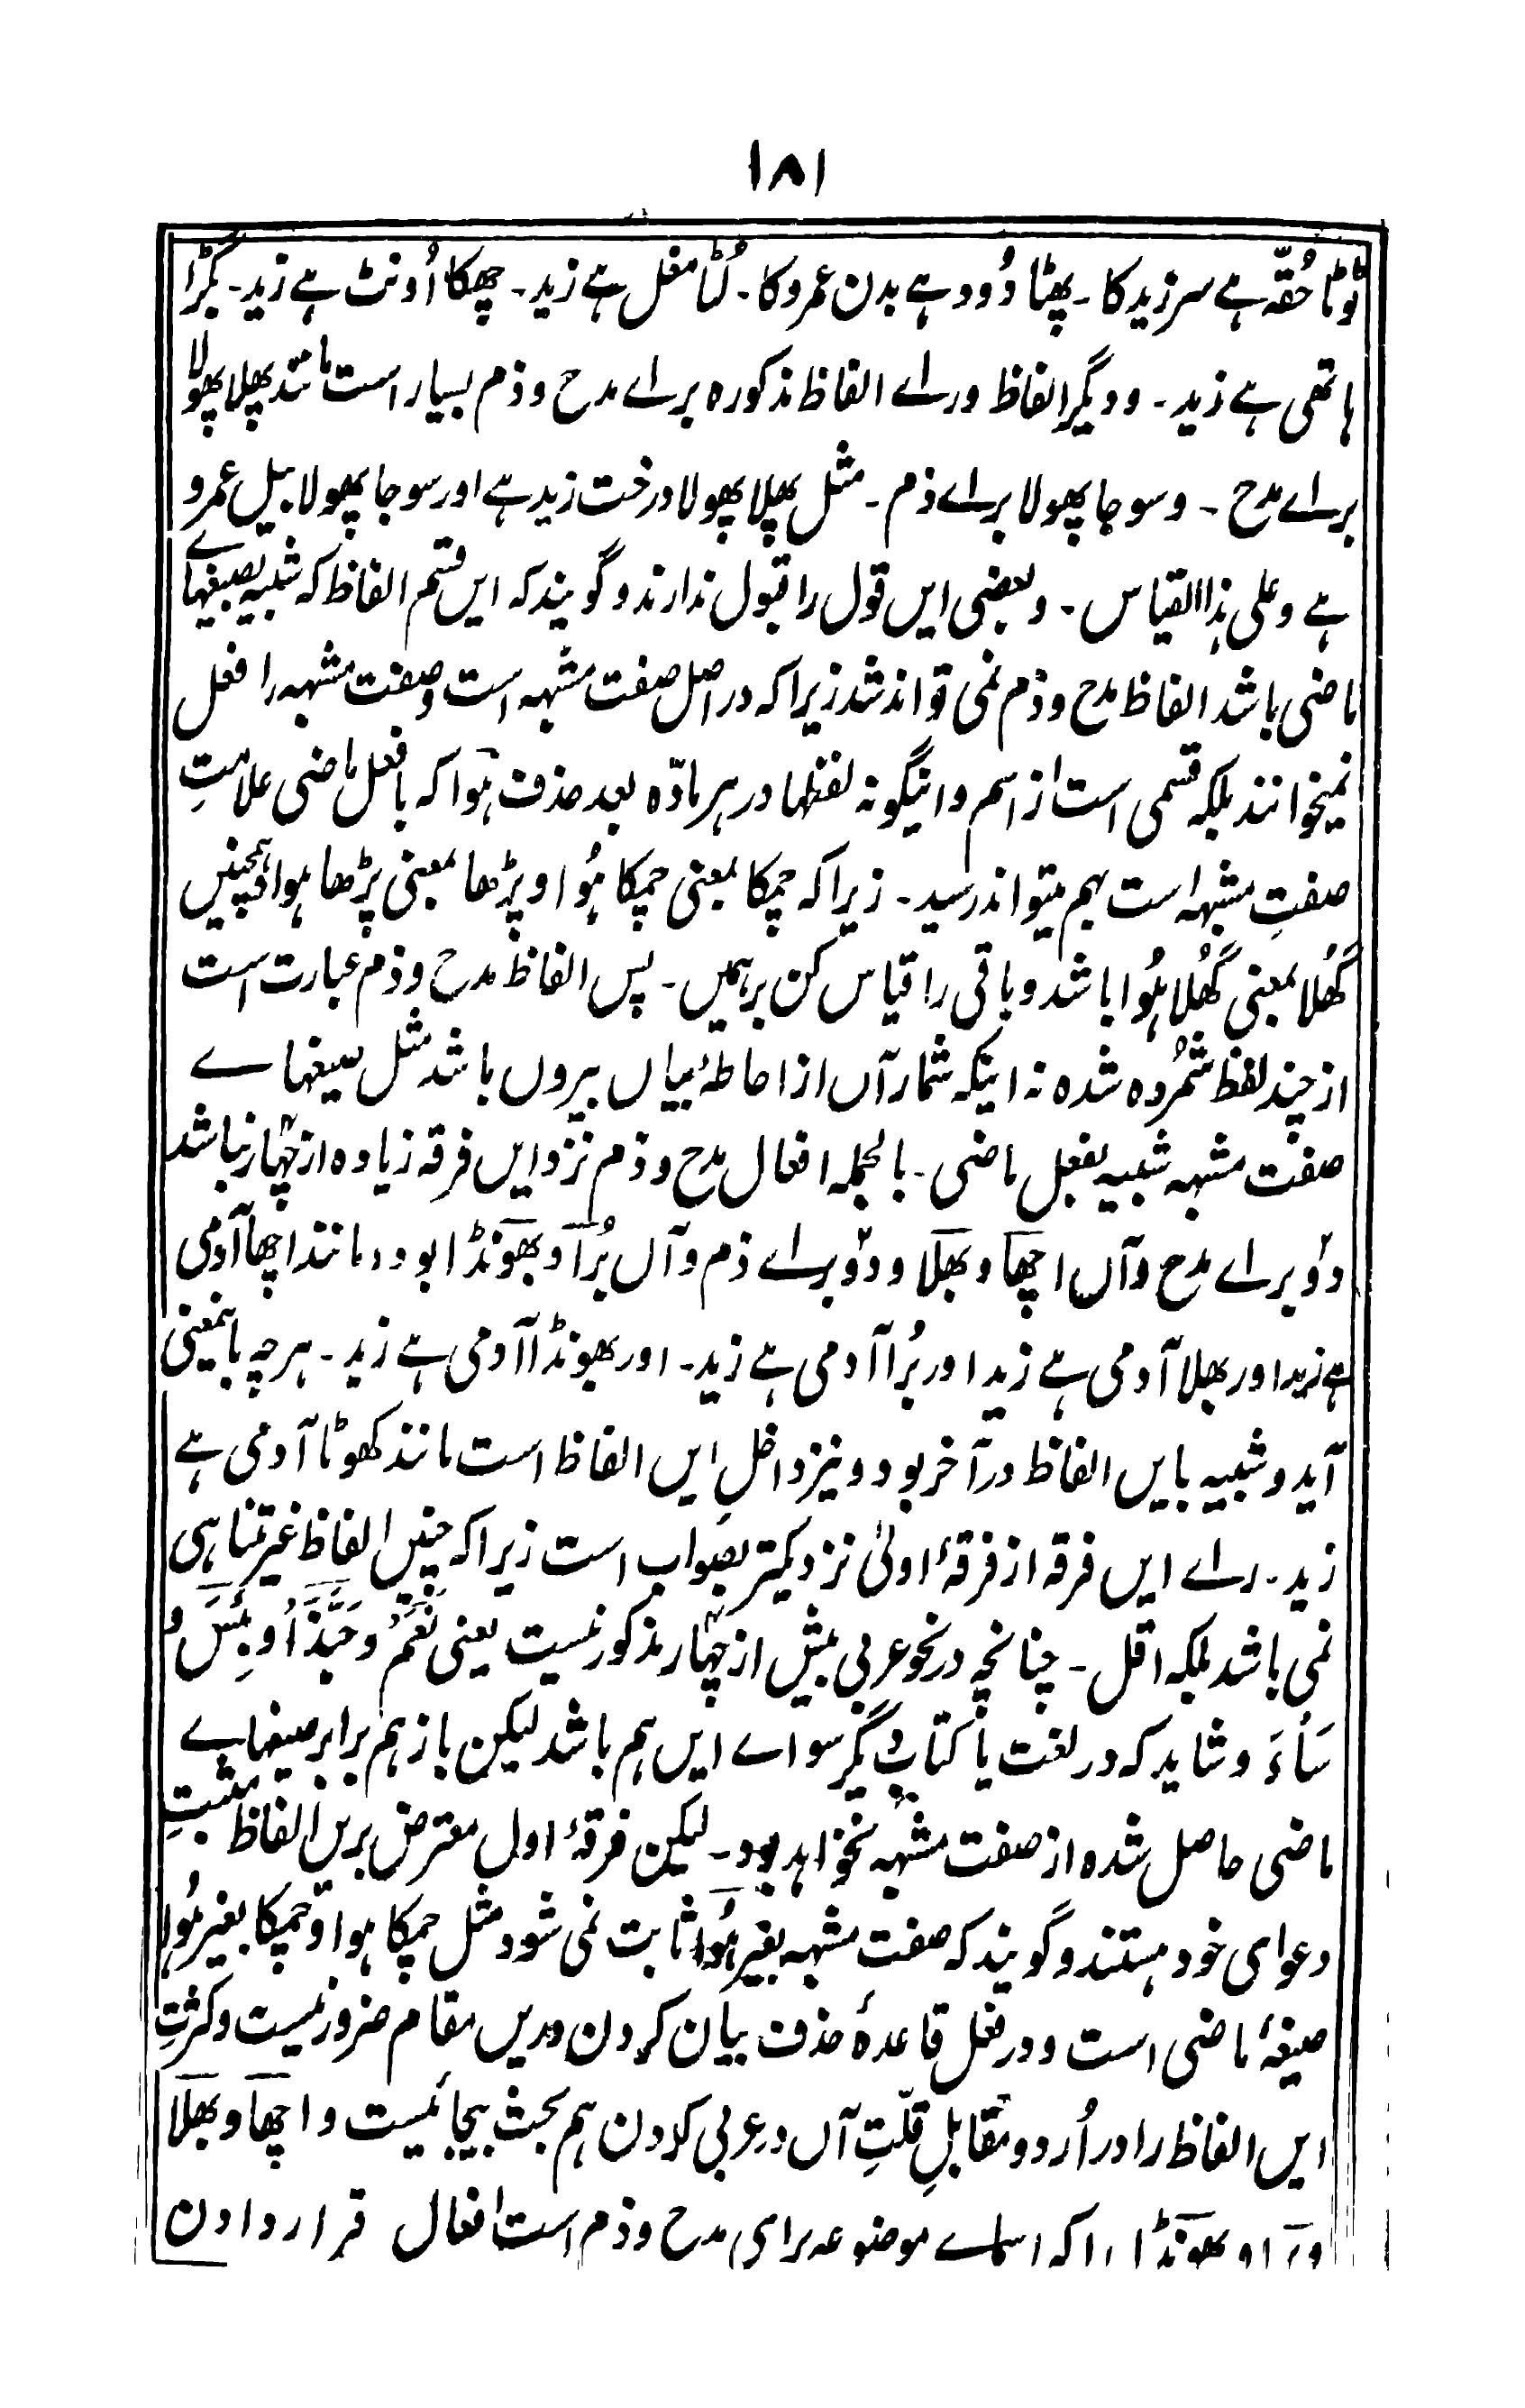 ۱۸۱
ٹوٹا حُقّہ ہے سر زید کا ۔ پھٹا دُود ہے بدن عمرو کا ۔ لُٹا مغل ہے زید ۔ چھکا اُونٹ ہے زید ۔ بگڑا
ہاتھی ہے زید ۔ و دیگر الفاظ وراے الفاظ مذکورہ براے مدح و ذم بسیار است مانند پھلا پھولا
براے مدح ۔ و سوجا پھولا براے ذم ۔ مثل پھلا پھولا درخت زید ہے اور سوجا پھولا بیل عمرو
ہے و علی ہذا القیاس ۔ و بعضی ایں قول را قبول ندارند و گویند کہ ایں قسم الفاظ کہ شبیہ بصیغہاے
ماضی باشد الفاظ مدح و ذم نمی تواند شد زیرا کہ در اصل صفت مشبہہ است و صفت مشبہہ را فعل
نمیخوانند بلکہ قسمی است از اسم و اینگونہ لفظہا در ہر مادّہ بعد حذف ہوا کہ با فعل ماضی علامتِ
صفتِ مشبہہ است بہم میتواند رسید ۔ زیرا کہ چمکا بمعنی چمکا ہُوا و پڑھا بمعنی پڑھا ہوا ہمچنیں
گھُلا بمعنی گھُلا ہُوا باشد و باقی را قیاس کن بر ہمیں ۔ پس الفاظ مدح و ذم عبارت است
از چند لفظ شمُردہ شدہ نہ اینکہ شمار آں از احاطۂ بیاں بیروں باشد مثل صیغہاے
صفت مشبہہ شبیہ بفعل ماضی ۔ بالجملہ افعال مدح و ذم نزد ایں فرقہ زیادہ از چہار نباشد
دو براے مدح و آں اچھا و بھلا و دو براے ذم و آں بُرا و بھونڈا بود ۔ مانند اچھا آدمی
ہے زید اور بھلا آدمی ہے زید اور بُرا آدمی ہے زید ۔ اور بھونڈا آدمی ہے زید ۔ ہر چہ باینمعنی
آید و شبیہ بایں الفاظ در آخر بود و نیز داخل ایں الفاظ است مانند کھوٹا آدمی ہے
زید ۔ راے ایں فرقہ از فرقۂ اولیٰ نزدیکتر بصواب است زیرا کہ چنیں الفاظ غیر متناہی
نمی باشد بلکہ اقل ۔ چنانچہ در نحو عربی بیش از چہار مذکور نیست یعنی نِعْمَ و حَبَّذَا و بِئْسَ و
سَاءَ و شاید کہ در لغت یا کتاب دیگر سواے ایں ہم باشد لیکن باز ہم برابر صیغہاے
ماضی حاصل شدہ از صفت مشبہہ نخواہد بود ۔ لیکن فرقۂ اول معترض بریں الفاظ مثبتِ
دعوای خود ہستند و گویند کہ صفت مشبہہ بغیر ہُوا ثابت نمی شود مثل چمکا ہوا و چمکا بغیر ہُوا
صیغۂ ماضی است و در فعل قاعدۂ حذف بیان کردن دریں مقام ضرور نیست و کثرتِ
ایں الفاظ را در اُردو مقابلِ قلّتِ آں در عربی کردن ہم بحث بیجا نیست و اچھا و بھلا
و بُرا و بھونڈا را کہ اسماے موضوعہ برای مدح و ذم است افعال قرار دادن